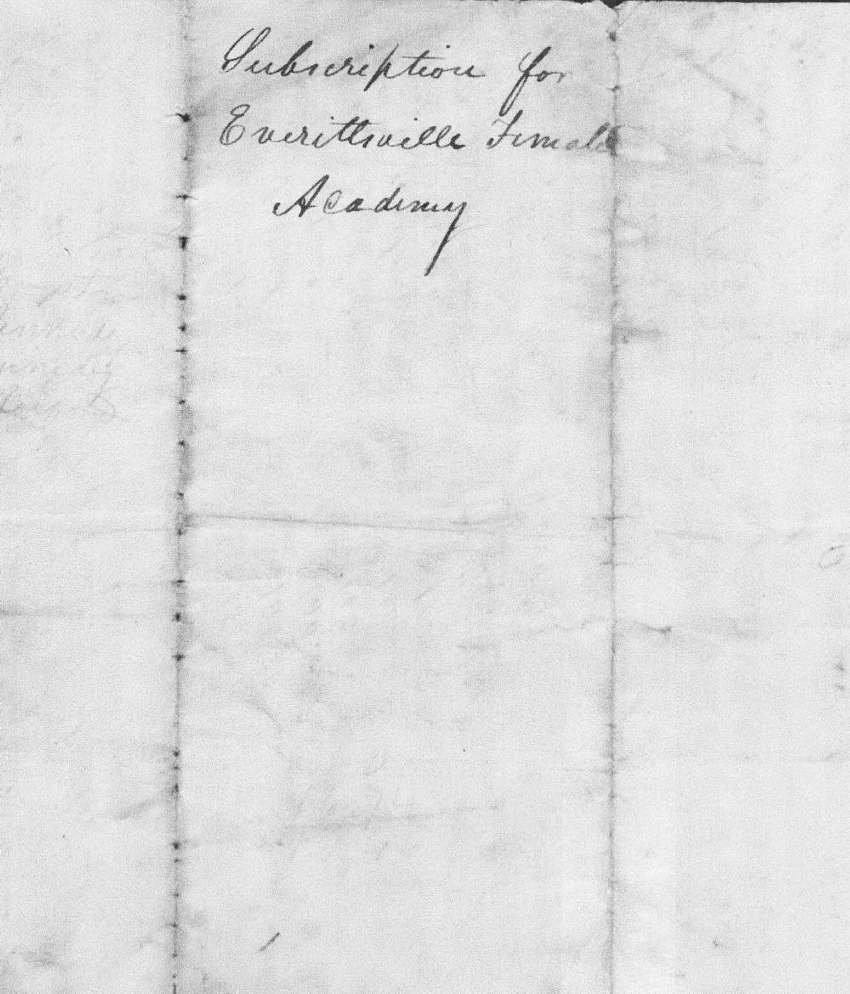 Subscription for
Everittsville Female
Academy